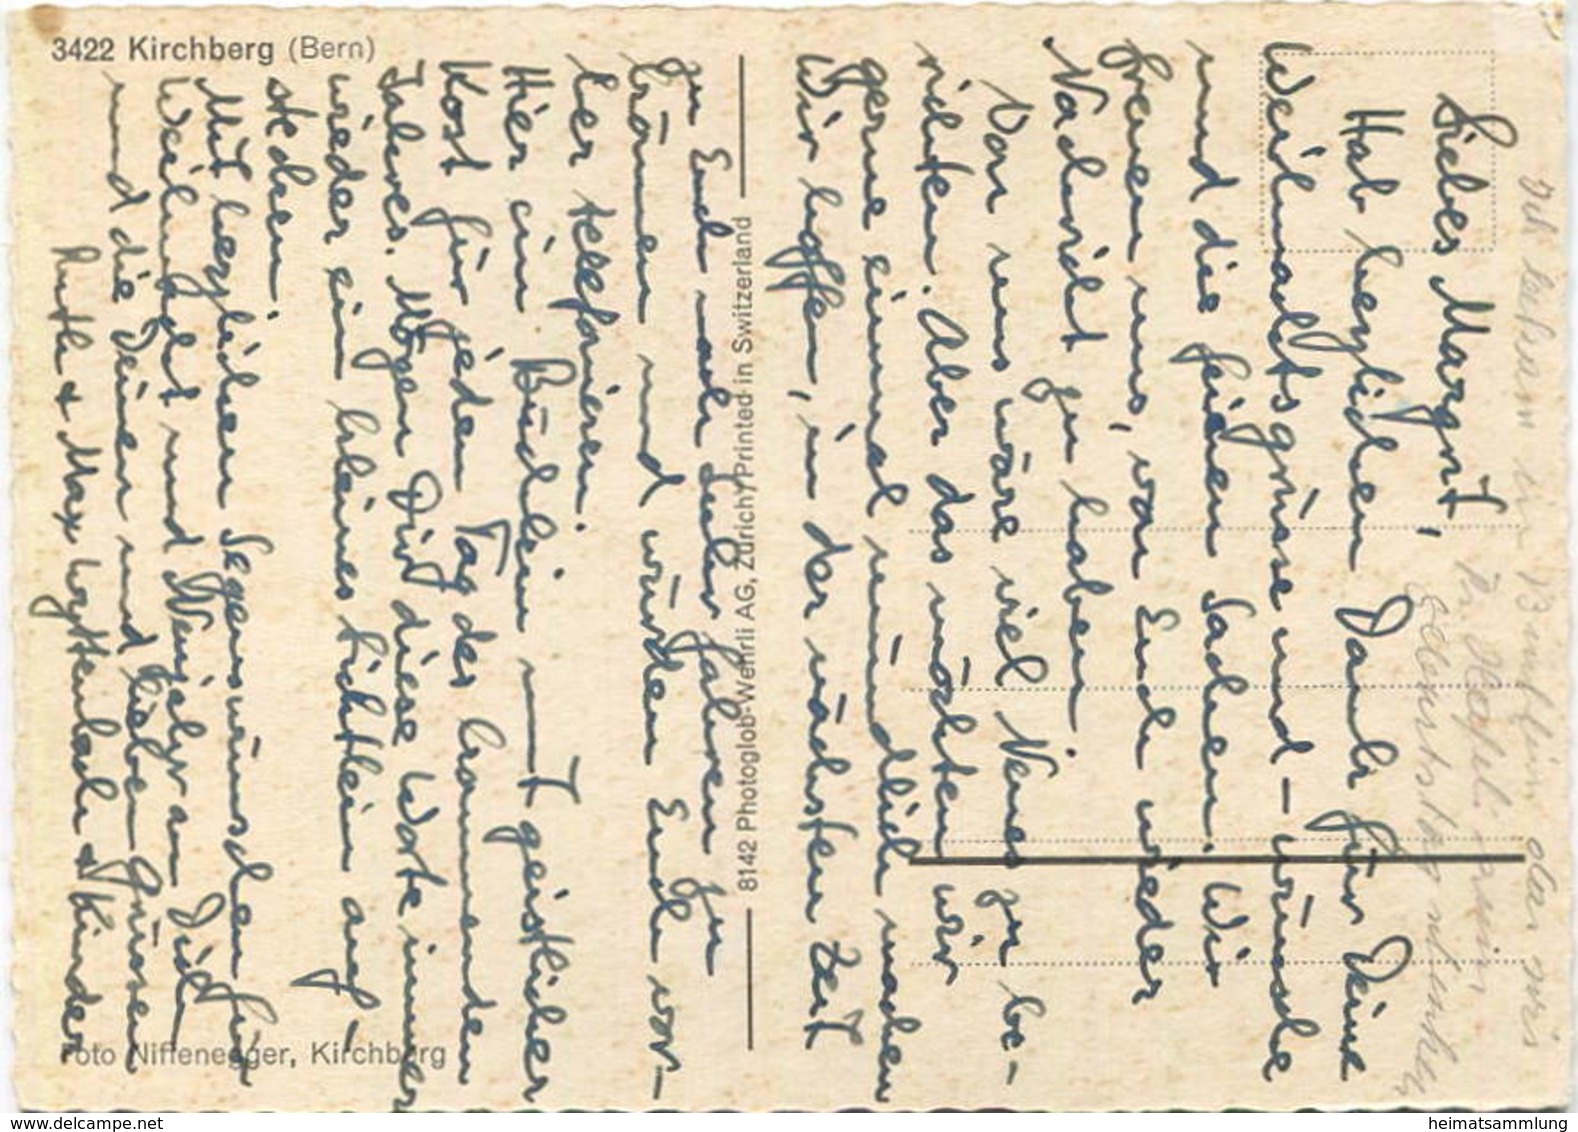 3422 Kirchberg (Bern)
Liebes Margrit,
Hab herzlichen Dank für Deine
Weihnachtsgrüsse und -wünsche
und die feinen Sachen. Wir
freuen uns, von Euch wieder
Nachricht zu haben.
Von uns wäre viel Neues zu be-
richten. Aber das möchten wir
gerne einmal mündlich machen
Wir hoffen, in der nächsten Zeit
8142 Photoglob-Wehrli AG, Zürich/Printed in Switzerland
zu Euch nach Suhr fahren zu
können und würden Euch vor-
her telefonieren.
Hier ein Büchlein mit geistlicher
Kost für jeden Tag des kommenden
Jahres. Mögen Dir diese Worte immer
wieder ein kleines Lichtlein auf-
stecken.
Mit herzlichen Segenswünschen für
Weihnacht und Neujahr an Dich
und die Deinen und lieben Grüssen
Ruth & Max Wyttenbach & Kinder
Foto Niffenegger, Kirchberg
ein
Geburtstag
www.delcampe.net
heimatsammlung